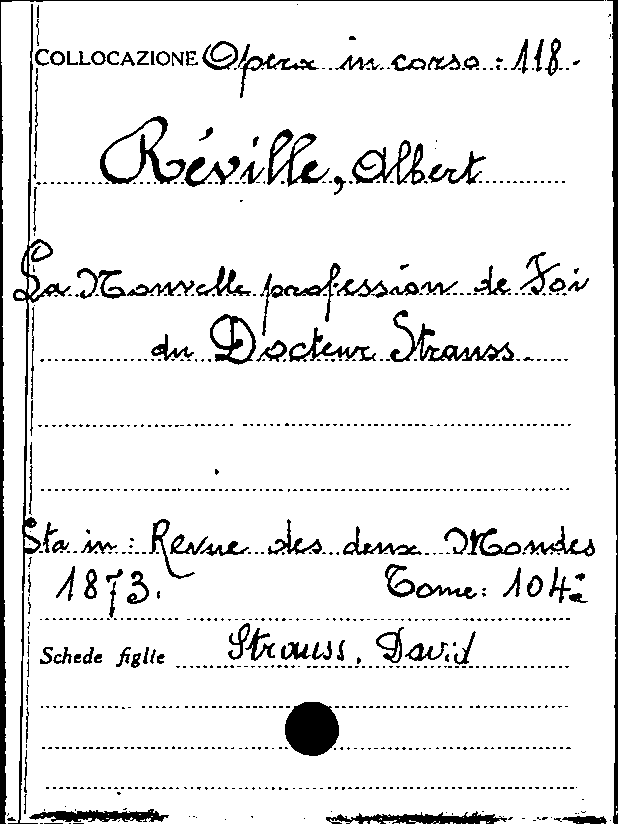 COLLOCAZIONE Opera in corso : 118.
Réville, Albert
La Nouvelle profession de Foi
du Docteur Strauss.
Sta in : Revue des deux Mondes
1873. Tome: 104:
Schede figlie Strauss, David